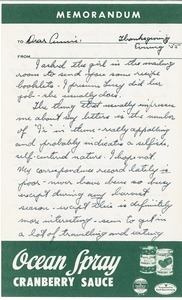 MEMORANDUM
TO Dear Annie: Thanksgiving
FROM Evening '55
I asked the girl in the mailing
room to send you some recipe
booklets. I presume Lucy did her
job - she usually does.
The thing that usually impresses
me about my letters is the number
of "I's" in them - really appalling
and probably indicates a selfish,
self-centered nature I hope not.
My correspondence record lately is
poor - never have been so busy
except during any harvest
season - except this is definitely
more interesting - seem to get in
a lot of travelling and eating
Ocean Spray
CRANBERRY SAUCE